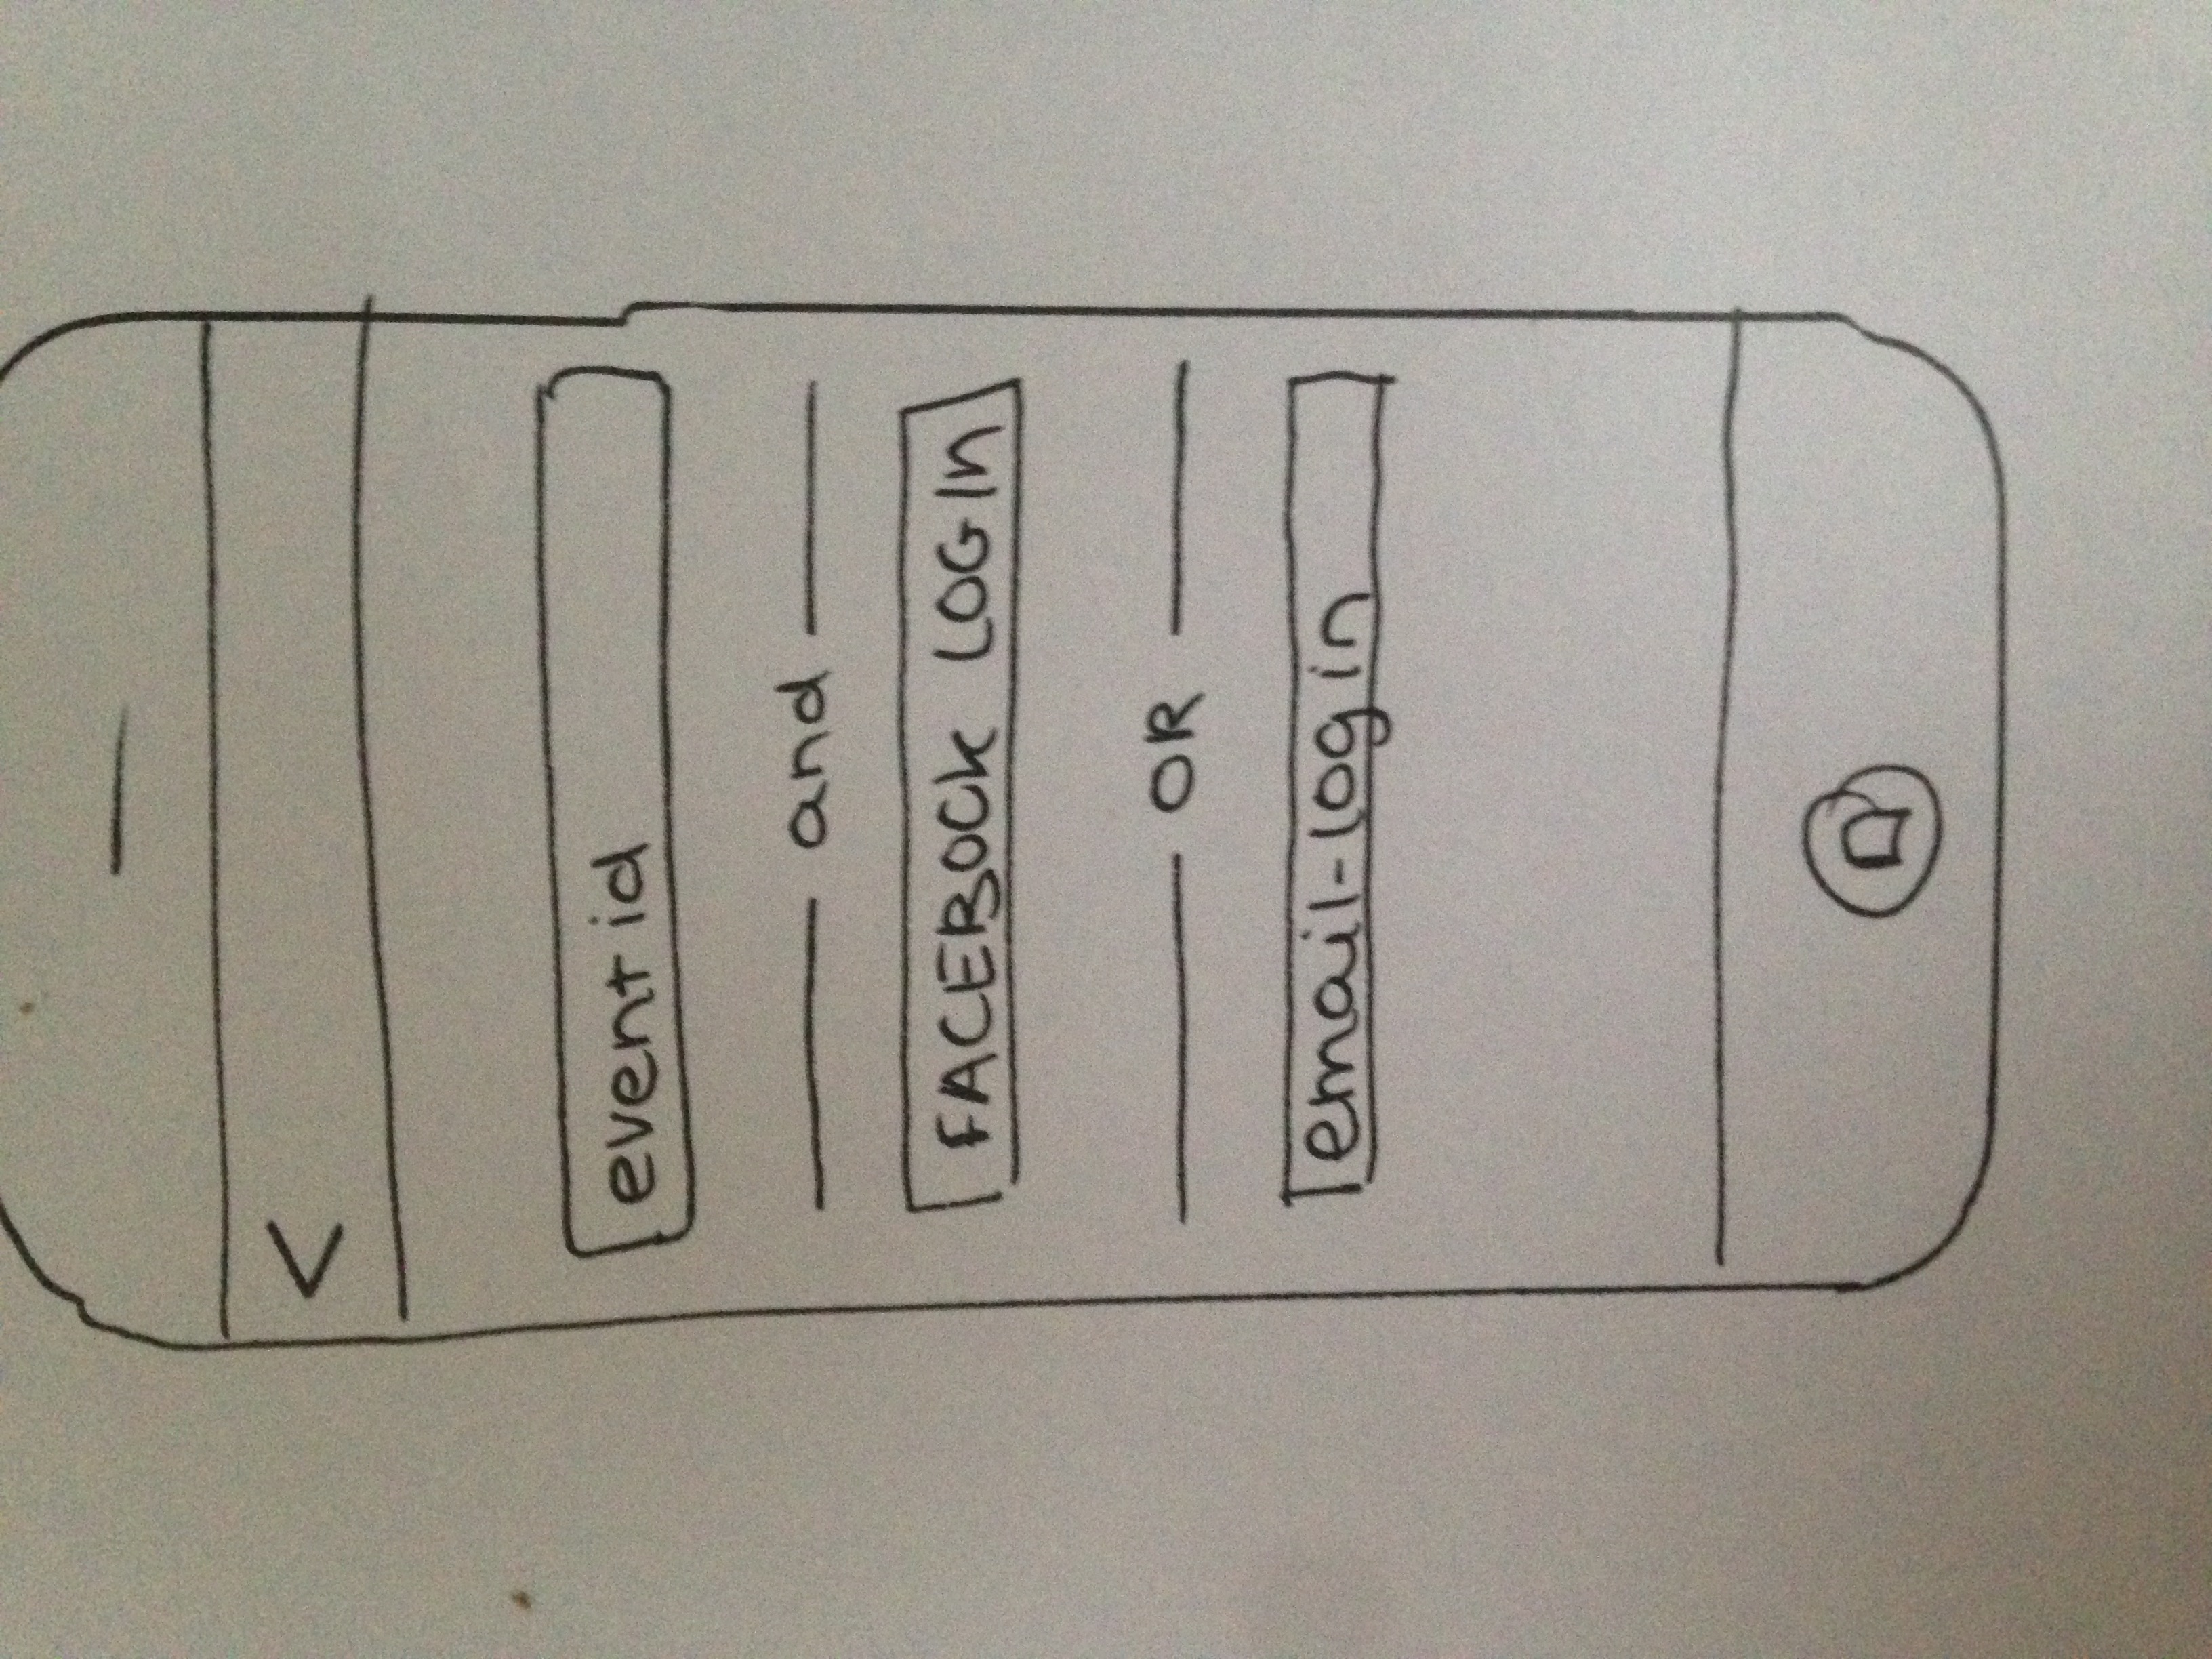 <
event id
and
FACEBOOK LOGIN
OR
email-login